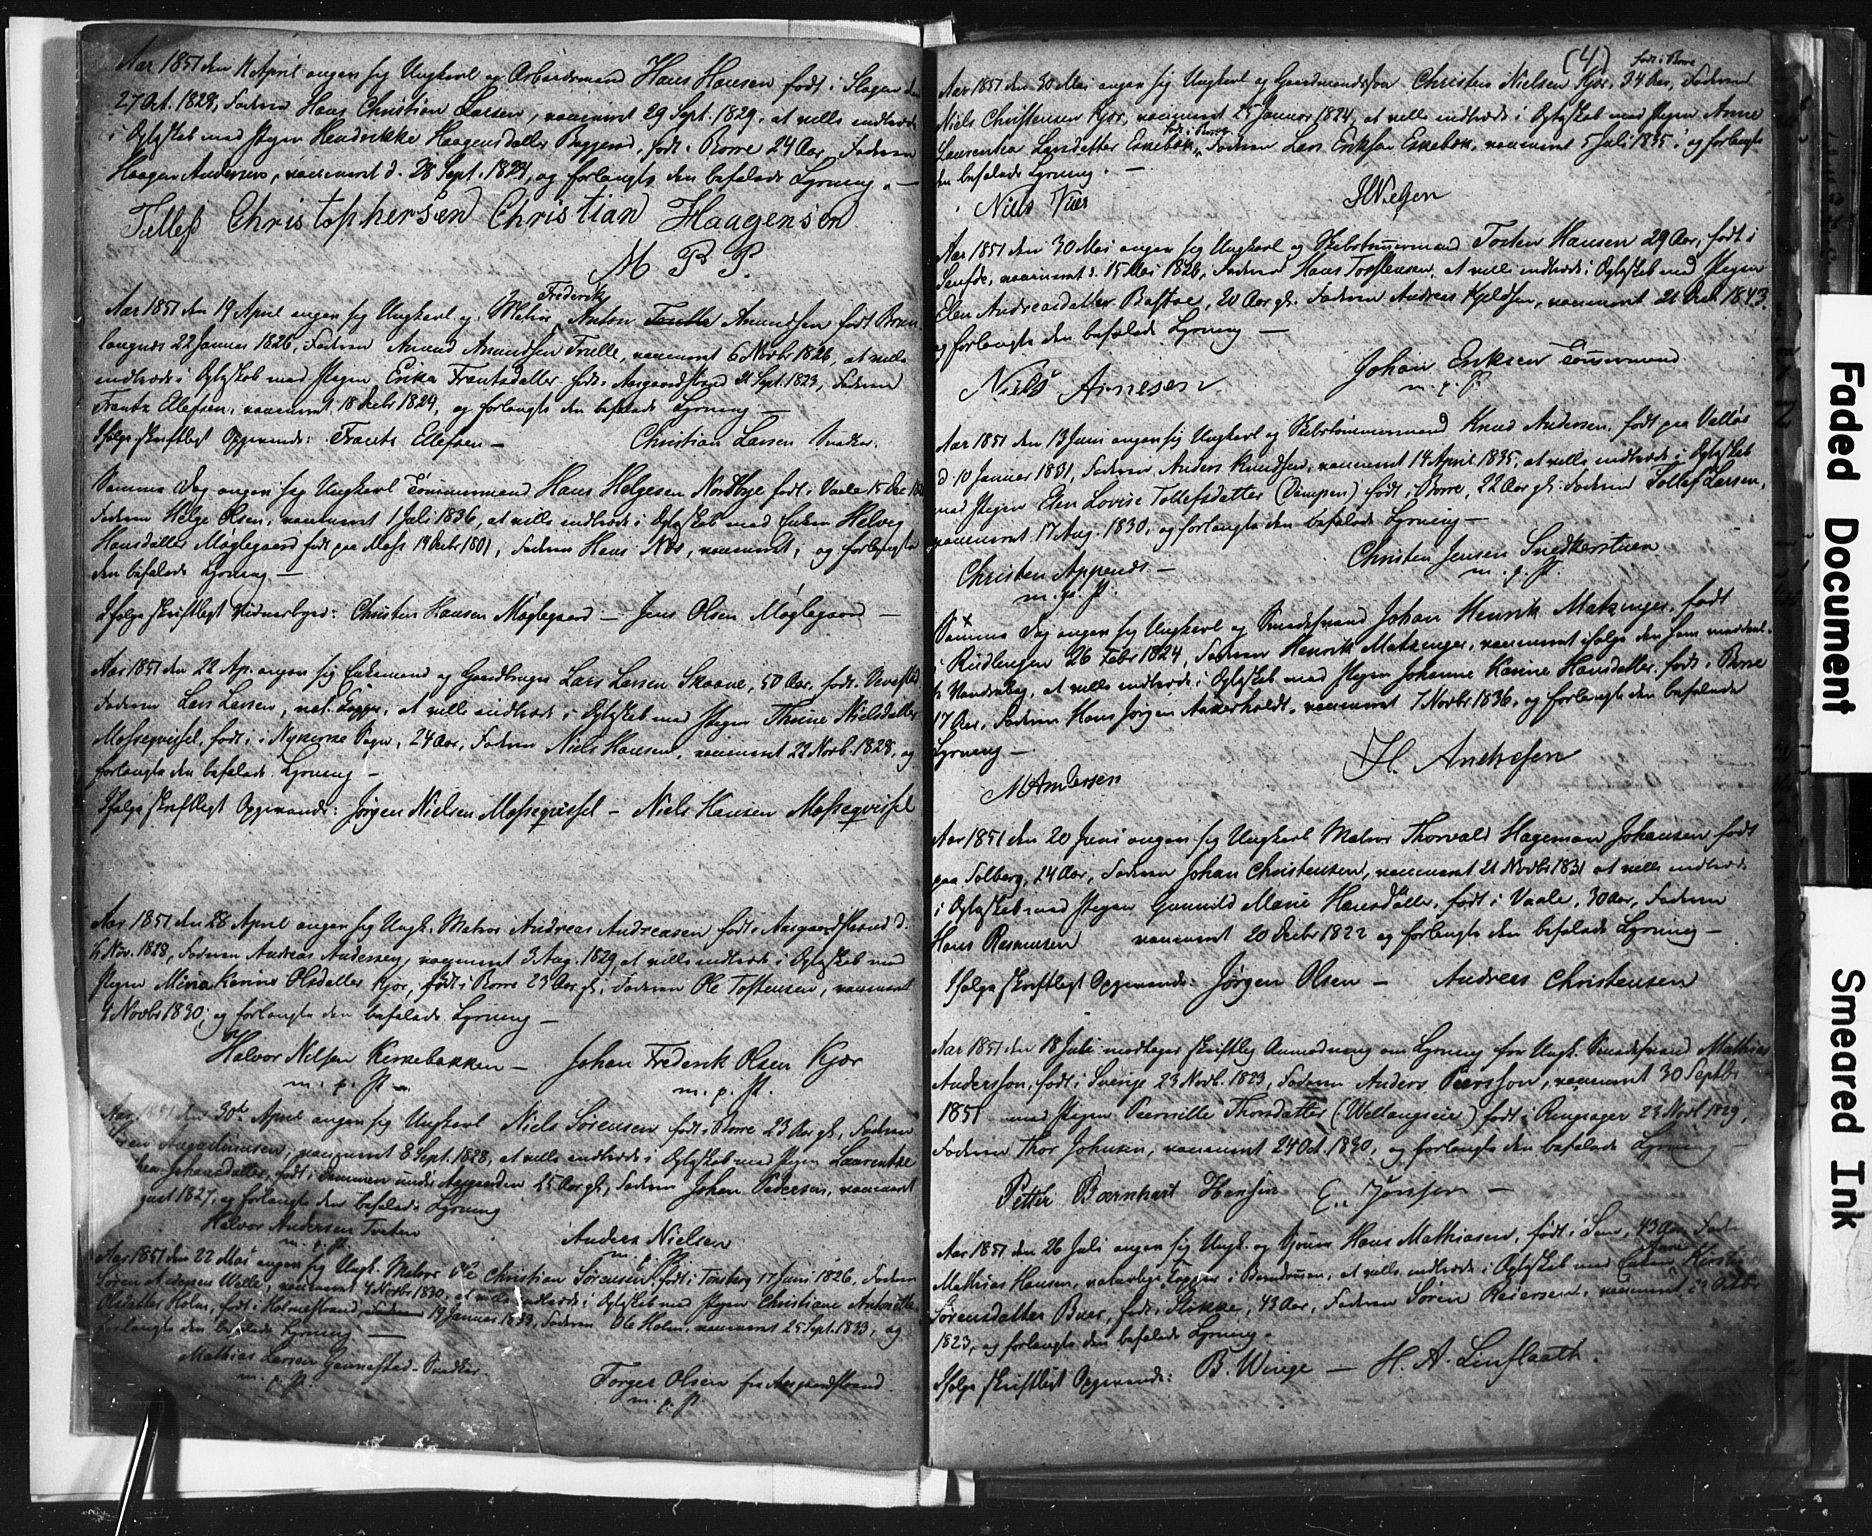 Aar 1851 den 11 April angav sig Ungkarl og Arbeidsmand Hans Hansen født i Slagen den
27 Oct. 1828, Faderen Hans Christian Larsen, vaccineret 29 Sept. 1829, at ville indtræde
i Egteskab med Pigen Hendrikke Haagensdatter Byggerød, født i Borre 24 Aar, Faderen
Haagen Andersen, vaccineret d. 28 Sept. 1829, og forlangte den befalede Lysning. —
Tellefs Christophersen Christian Haagensen
M P P.
Frederik
Aar 1851 den 19 April angav sig Ungkarl og Matros Anton Amundsen født
22 Januar 1826, Faderen Amund Amundsen Trælle, vaccineret 6 Novbr 1826, at ville
indtræde i Egteskab med Pigen Erika Frantsdatter født i Aasgaardstrand 21 Sept. 1823, Faderen
Frantz Ellefsen, vaccineret 18 Decbr 1829, og forlangte den befalede Lysning —
Ifølge skriftligt Opgivende: Frants Ellefsen — Christian Larsen Snedker.
Samme Dag angav sig Ungkarl Tømmermand Hans Helgesen Nordbye født i Vaale 15 Dec
Faderen Helge Olsen, vaccineret 1 Juli 1836, at ville indtræde i Egteskab med Enken Helvig
Hansdatter Moglegaard født paa Moss 19 Decbr 1801, Faderen Hans Næs, vaccineret, og forlangte
den befalede Lysning —
Ifølge skriftligt Vidnesbyrd: Christen Hansen Møglegaard — Jens Olsen Møglegaard —
Aar 1851 den 22 Ap. angav sig Enkemand og Gaardbruger Lars Larsen Skaane, 50 Aar, født i
Faderen Lars Larsen, nat. Kopper, at ville indtræde i Egteskab med Pigen Thrine Nielsdatter
Mosseqvissel, født i Nykirke Sogn, 24 Aar, Faderen Niels Hansen, vaccineret 22 Novb. 1828, og
forlangte den befalede Lysning —
Ifølge skriftligt Opgivende: Jørgen Nielsen Mosseqvissel — Niels Hansen Mosseqvissel
Aar 1851 den 28 April angav sig Ungk. Matros Andreas Andreasen født i Aasgaardstrand d.
Nov. 1828, Faderen Andreas Andersen, vaccineret 3 Aug. 1829, at ville indtræde i Egteskab med
Pigen Mina Karine Olsdatter Kjør, født i Borre 23 Aar gl, Faderen Ole Tostensen, vaccineret
9 Novbr 1830, og forlangte den befalede Lysning —
Halvor Nilsen Kirkebakken — Johan Frederik Olsen Kjør
m. p. P. — m. p. P.
Aar 1851 den 30te April angav sig Ungkarl Niels Sørensen født i Borre 23 Aar gl, Faderen
Augestinusen, vaccineret 8 Sept. 1828, at ville indtræde i Egteskab med Pigen Laurentze
Johansdatter, født i under Aasgaarden 25 Aar gl, Faderen Johan Pedersen, vaccineret
gust 1827, og forlangte den befalede Lysning
Halvor Andersen Tveten Anders Nielsen
m. p. P. m. p. P.
Aar 1851 den 22 Mai angav sig Ungk. Matros Ole Christian Sørensen, født i Tønsberg 17 Juni 1826, Faderen
Søren Andersen Welle, vaccineret 4 Novbr 1830, at ville indtræde i Egteskab med Pigen Christiane Antonette
Olsdatter Holm, født i Holmestrand, 19 Januar 1833, Faderen Ole Holm, vaccineret 25 Sept. 1833, og
forlangte den befalede Lysning. —
Mathias Larsen Gannestad — Snedker
m. p. P.
Torger Olsen fra Aasgaardstrand
m. p. P.
(4)
født i Borre
Aar 1851 den 30 Mai angav sig Ungkarl og Gaardmandssøn Christen Nielsen Kjær, 24 Aar, Faderen
Niels Christensen Kjær, vaccineret 25 Januar 1824, at ville indtræde i Egteskab med Pigen Anne
født i Borre
Laurentza Larsdatter Ekkebøk, Faderen Lars Eriksen Ekkebøk, vaccineret 5 Juli 1835, og forlangte
den befalede Lysning. —
Niels Kiær JNielsen
Aar 1851 den 30 Mai angav sig Ungkarl og Skibstømmermand Tosten Hansen 29 Aar, født i
vaccineret d. 15 Mai 1826, Faderen Hans Tostensen, at ville indtræde i Egteskab med Pigen
Elen Andreasdatter Bastøe, 20 Aar gl. Faderen Andreas Kjeldsen, vaccineret 21 Oct. 1843.
og forlangte den befalede Lysning —
Niels Arnesen Johan Eriksen Tømmermand
m. p. P.
Aar 1851 den 13 Juni angav sig Ungkarl og Skibstømmermand Knud Andersen, født paa Valløe
d 10 Januar 1831, Faderen Anders Knudsen, vaccineret 14 April 1835, at ville indtræde i Egteskab
med Pigen Elen Lovise Tollefsdatter (Dampen) født i Borre, 22 Aar gl. Faderen Tollef Larsen,
vaccineret 17 Aug. 1830, og forlangte den befalede Lysning —
Christen Appends — Christen Jensen Snedkerstuen
m. p. P. m. p. P.
Samme Dag angav sig Ungkarl og Smedesvend Johan Henrik Matzinger, født
i Rüdlingen 26 Febr 1824, Faderen Henrik Matzinger, vaccineret ifølge den ham meddeel-
te Vandrebog, at ville indtræde i Egteskab med Pigen Johanne Karine Hansdatter, født i Borre
17 Aar, Faderen Hans Jørgen Aakerholdt, vaccineret 7 Novbr 1836, og forlangte den befalede
Lysning —
M Andersen H. Andresen
Aar 1851 den 20 Juni angav sig Ungkarl Matros Thorvald Hageman Johansen født
paa Solberg, 24 Aar, Faderen Johan Christensen, vaccineret 21 Novbr 1831 at ville indtræde
i Egteskab med Pigen Gunnild Marie Hansdatter, født i Vaale, 30 Aar, Faderen
Hans Rasmussen vaccineret 20 Decbr 1822 og forlangte den befalede Lysning —
Ifølge skriftligt Opgivende: Jørgen Olsen — Andreas Christensen
Aar 1851 den 18 Juli modtoges skriftlig Anmodning om Lysning for Ungk. Smedesvend Mathias
Andersson, født i Sverige 23 Novb. 1823, Faderen Anders Peersson, vaccineret 30 Septbr
1851 med Pigen Pernille Thorsdatter (Wellangseie) født i Ringsager 23 Novb 1829,
Faderen Thor Johnsen, vaccineret 24 Oct. 1830, og forlangte den befalede Lysning —
Petter Bærnhart Hansen E. Jonsson —
Aar 1851 den 26 Juli angav sig Ungk. og Hans Mathiasen, født i Sem, 43 Aar, Faderen
Mathias Hansen, naturlige Kopper i Barndommen, at ville indtræde i Egteskab med Enken Anne Kirstine
Sørensdatter Buer, født i Stokke, 43 Aar, Faderen Søren Reiersen, vaccineret Octbr
1823, og forlangte den befalede Lysning.
Ifølge skriftligt Opgivende: B. Winge — H. A. Linflaath.
Faded Document
Smeared Ink